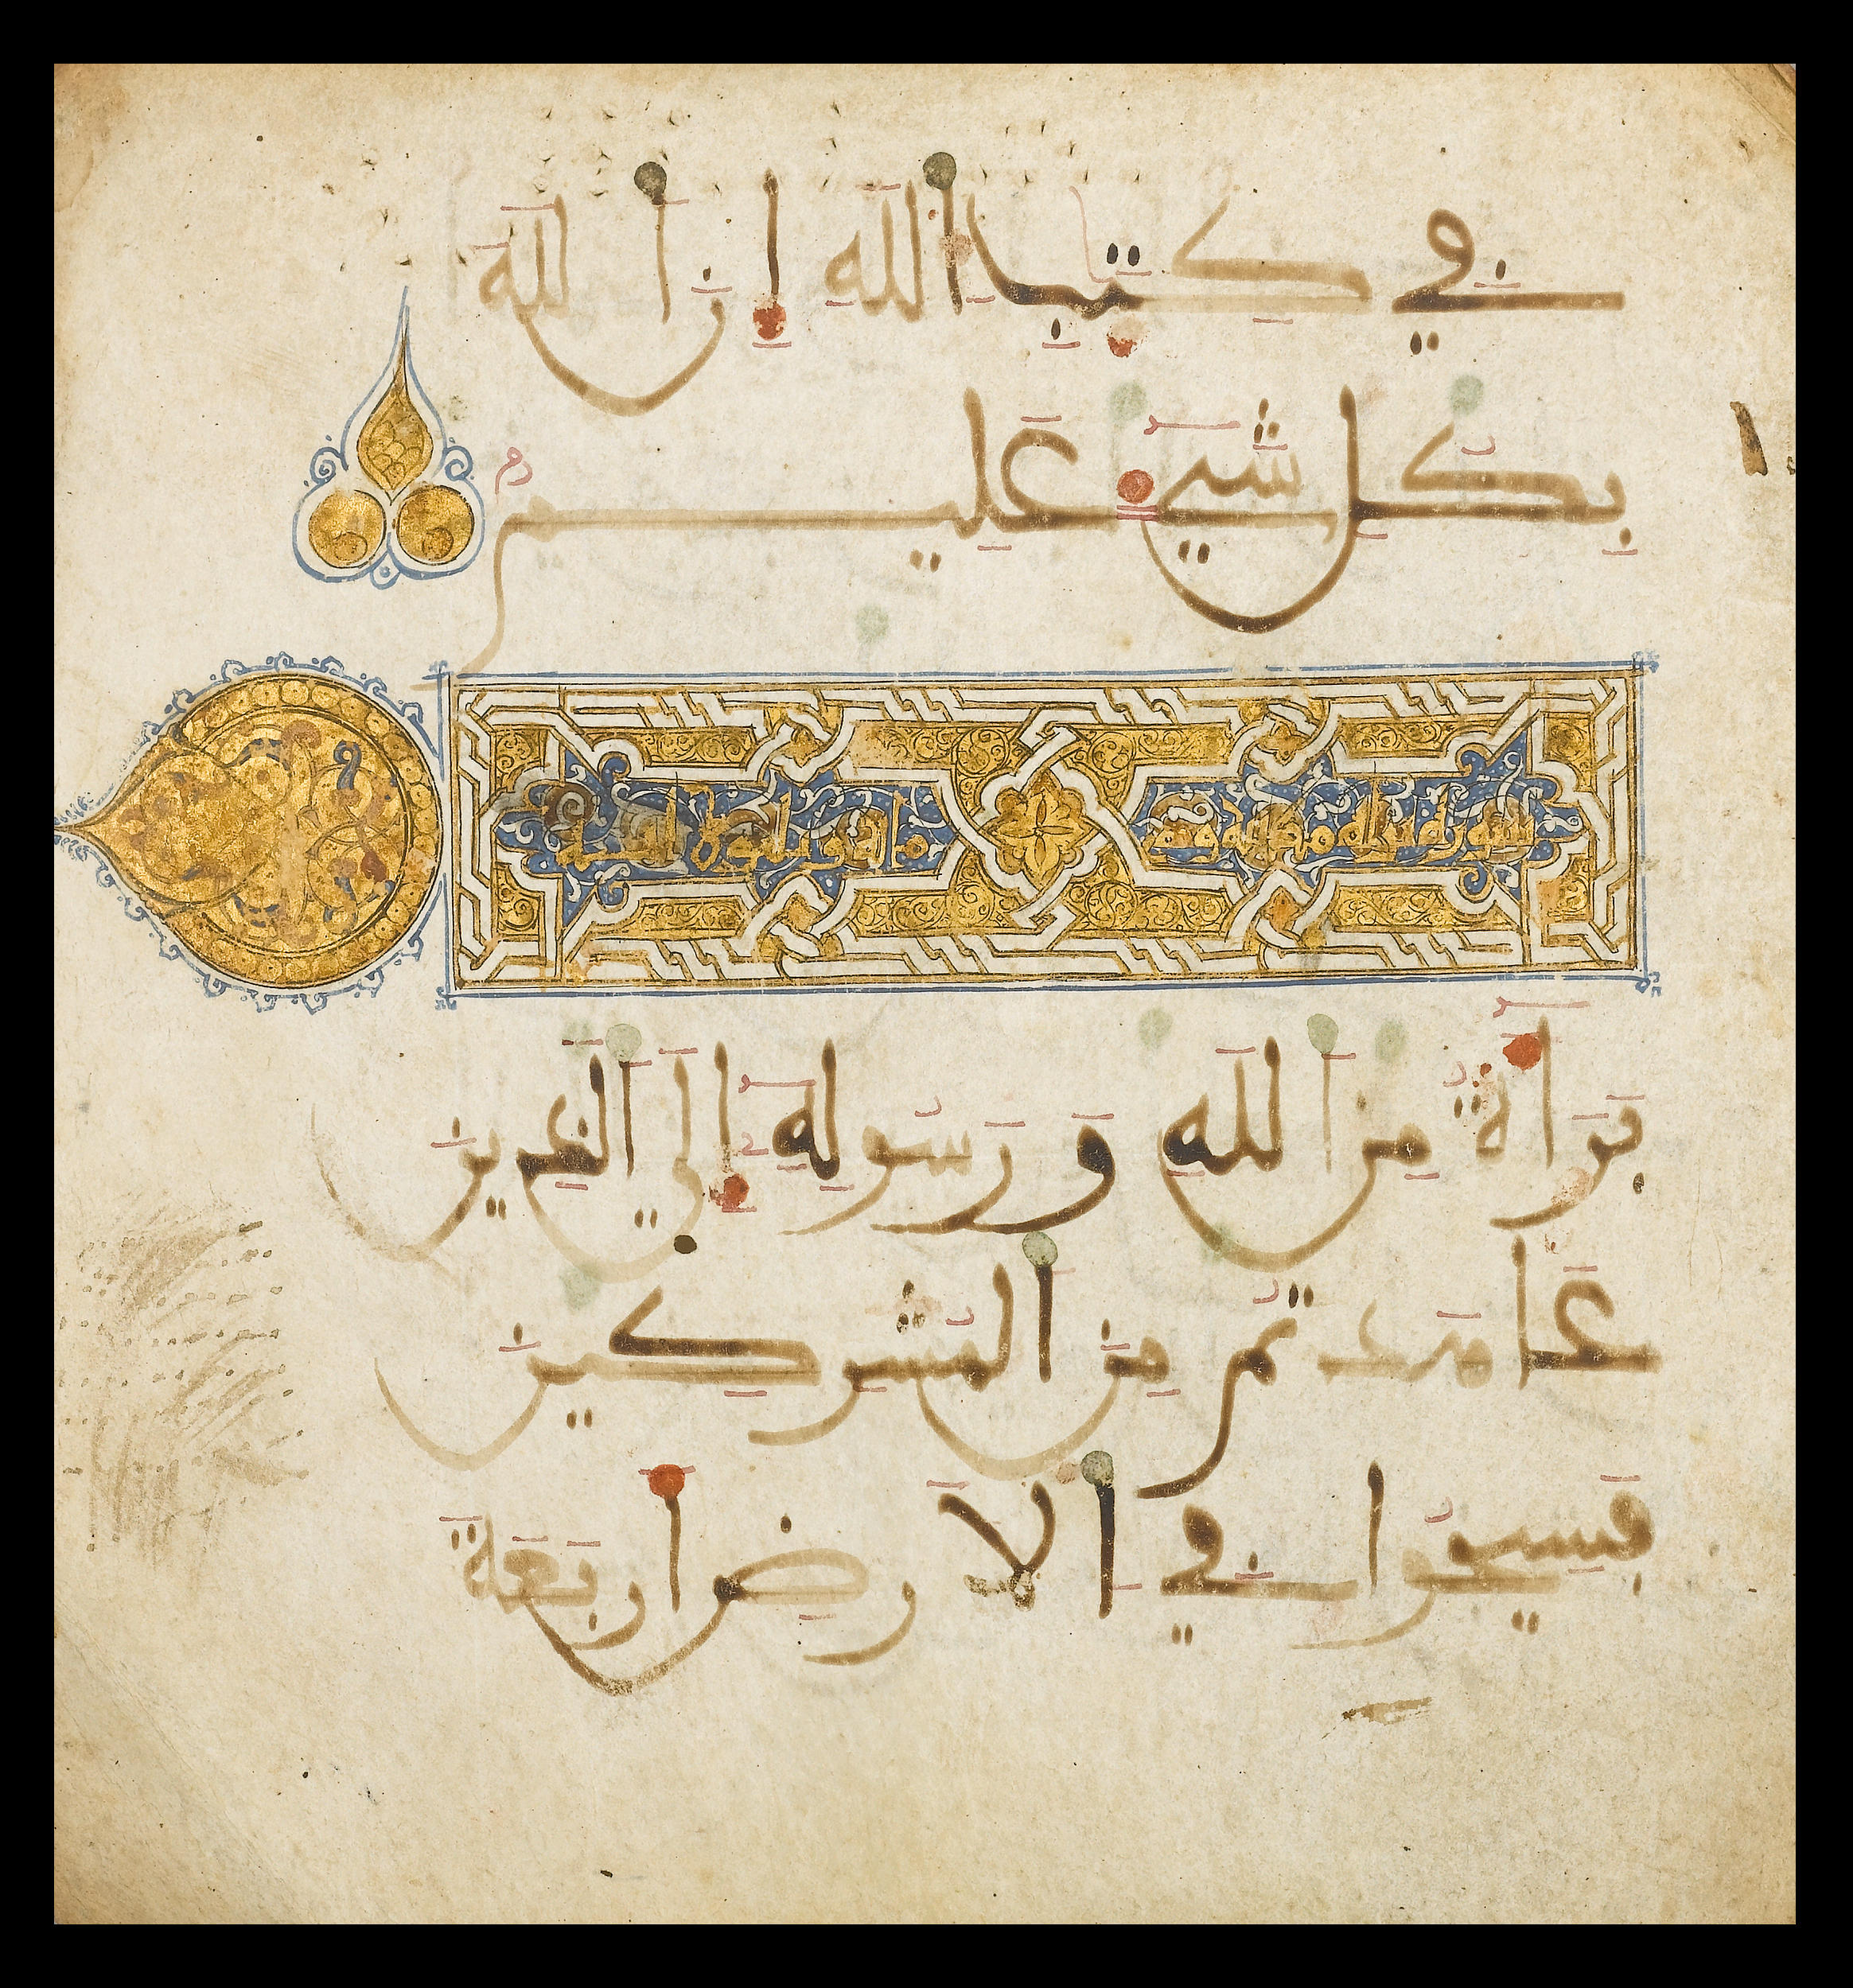 فِي كِتَٰبِ اِ۬للَّهِ إِنَّ اَ۬للَّهَ
بِكُلِّ شَيْءٍ عَلِيمٌ
سورة
بَرَآءَةٌ مِّنَ اَ۬للَّهِ وَرَسُولِهِ إِلَى اَ۬لَّذِينَ
عَاهَدتُّم مِّنَ اَ۬لْمُشْرِكِينَ
فَسِيحُوا فِي اِ۬لَارْضِ أَرْبَعَةَ